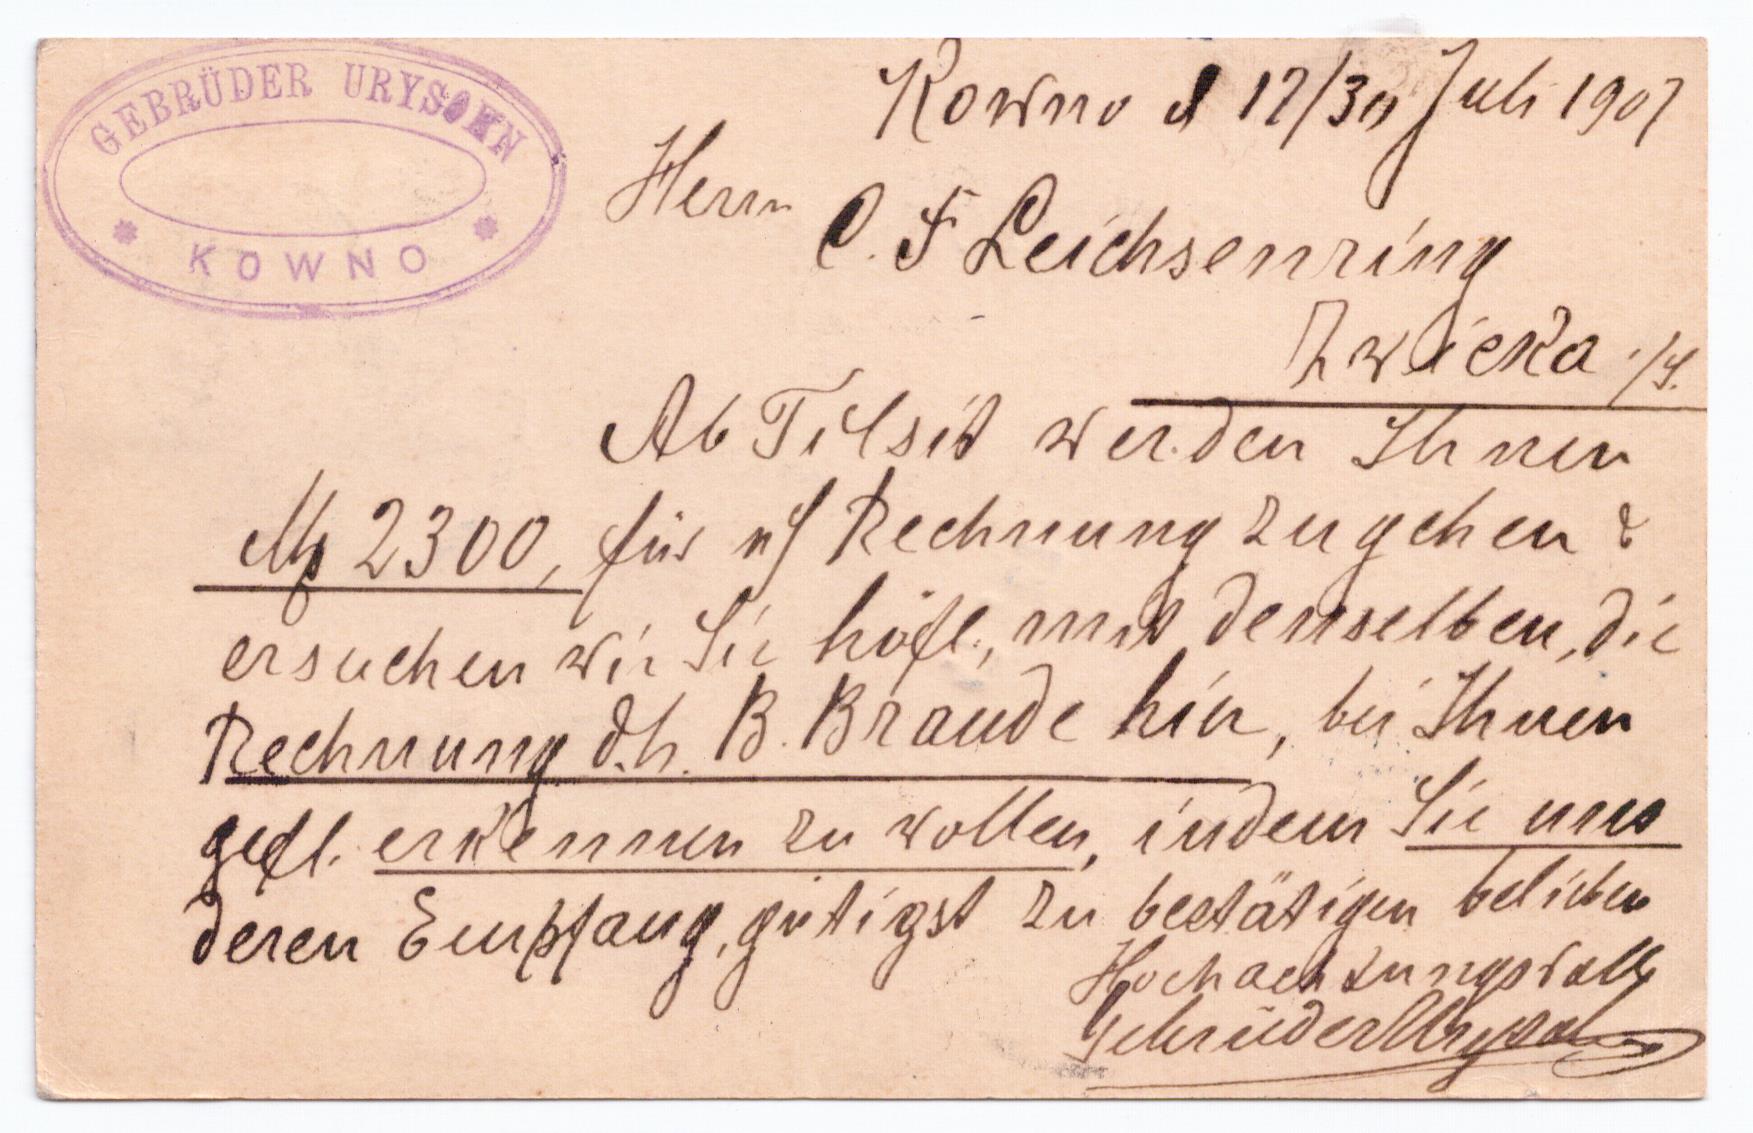 GEBRÜDER URYSOHN
KOWNO
Kowno d 17/30 Juli 1907
Herrn
C. F Leichsenring
Zwicka i/S.
Ab Tilsit werden Ihnen
Mk 2300, für n/ Rechnung zugehen &
ersuchen wir Sie höfl., mit denselben, die
Rechnung d.h. B. Braude hier, bei Ihnen
gefl. erkennen zu wollen, indem Sie uns
deren Empfang, gütigst zu bestätigen belieben
Hochachtungsvoll
Gebrüder Urysohn